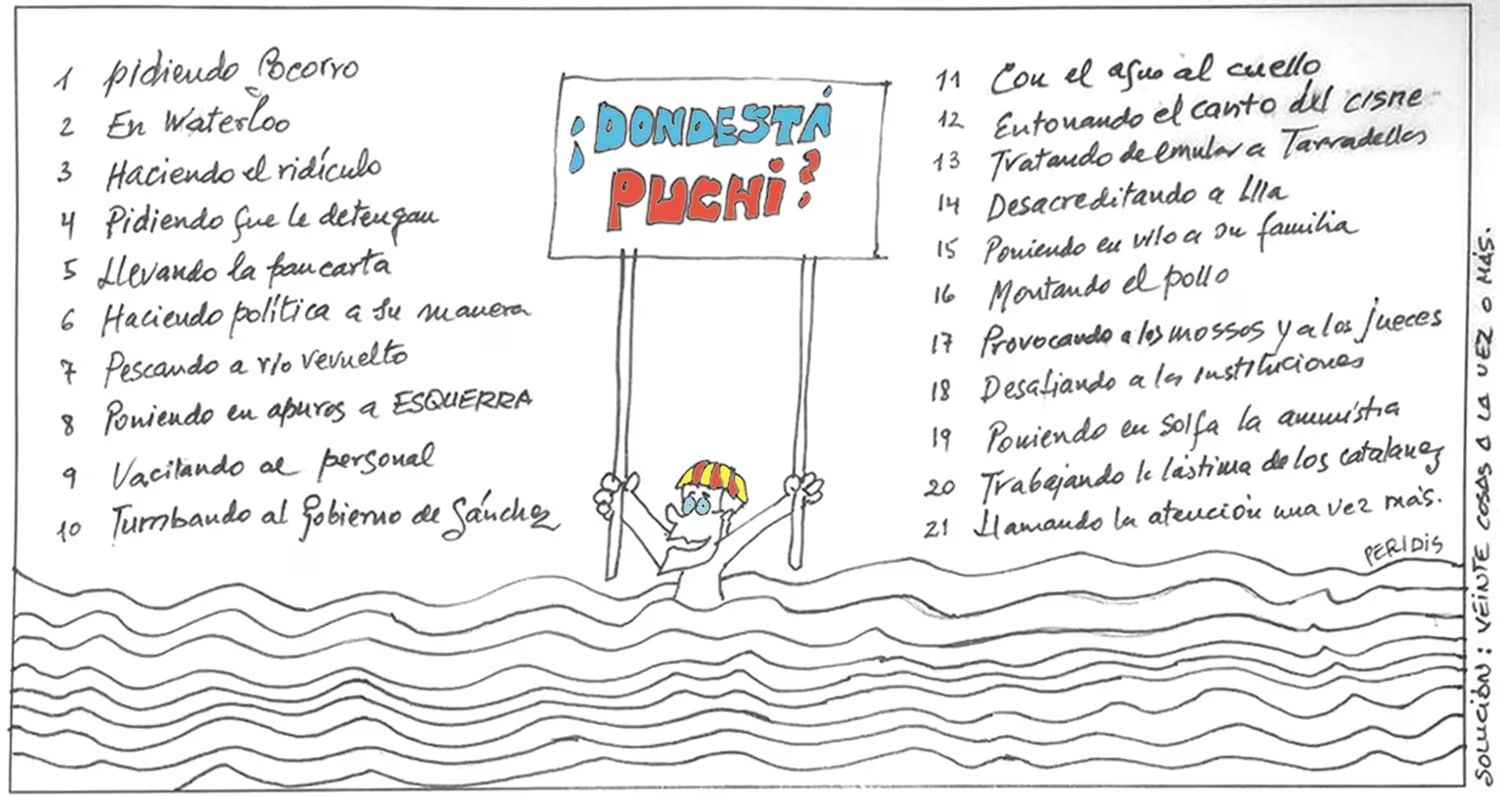 ¡DONDESTÁ
PUCHI?
1 pidiendo Socorro
2 En Waterloo
3 Haciendo el ridículo
4 Pidiendo que le detengan
5 Llevando la pancarta
6 Haciendo política a su manera
7 Pescando a río revuelto
8 Poniendo en apuros a ESQUERRA
9 Vacilando al personal
10 Tumbando al Gobierno de Sánchez
11 Con el agua al cuello
12 Entonando el canto del cisne
13 Tratando de emular a Tarradellas
14 Desacreditando a Illa
15 Poniendo en vilo a su familia
16 Montando el pollo
17 Provocando a los mossos y a los jueces
18 Desafiando a las instituciones
19 Poniendo en solfa la amnistía
20 Trabajando la lástima de los catalanes
21 Llamando la atención una vez más.
PERIDIS
SOLUCIÓN: VEINTE COSAS A LA VEZ O MÁS.